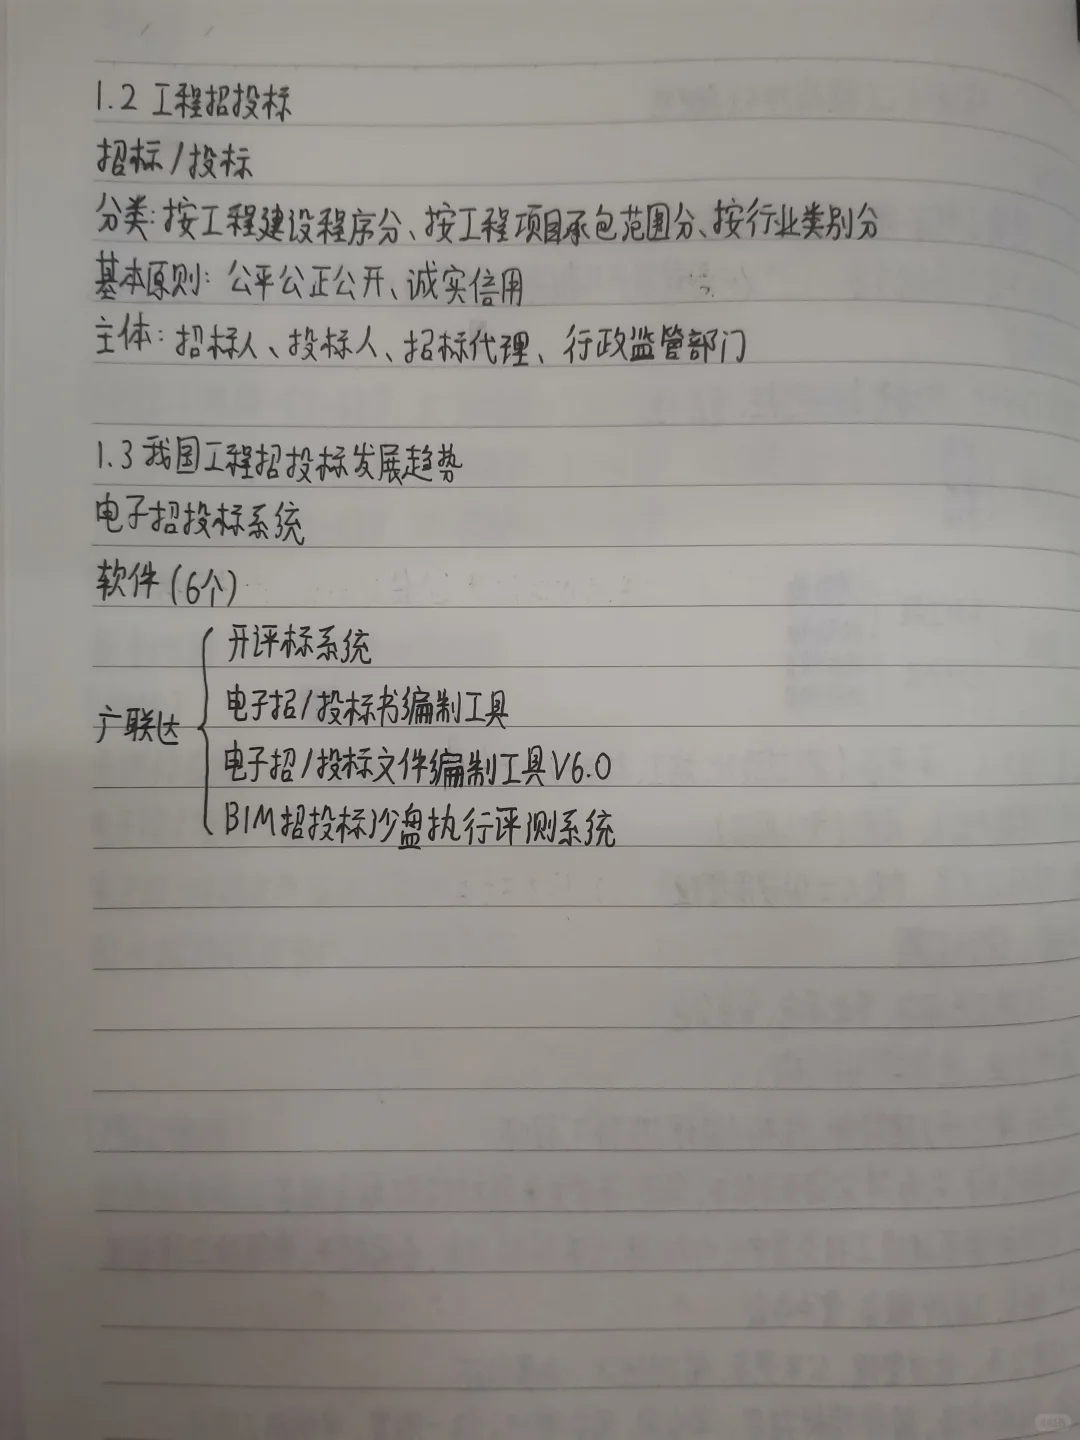 1.2 工程招投标
招标/投标
分类:按工程建设程序分、按工程项目承包范围分、按行业类别分
基本原则:公平公正公开、诚实信用
主体:招标人、投标人、招标代理、行政监管部门
1.3 我国工程招投标发展趋势
电子招投标系统
软件(6个)
广联达
开评标系统
电子招/投标书编制工具
电子招/投标文件编制工具V6.0
BIM招投标沙盘执行评测系统